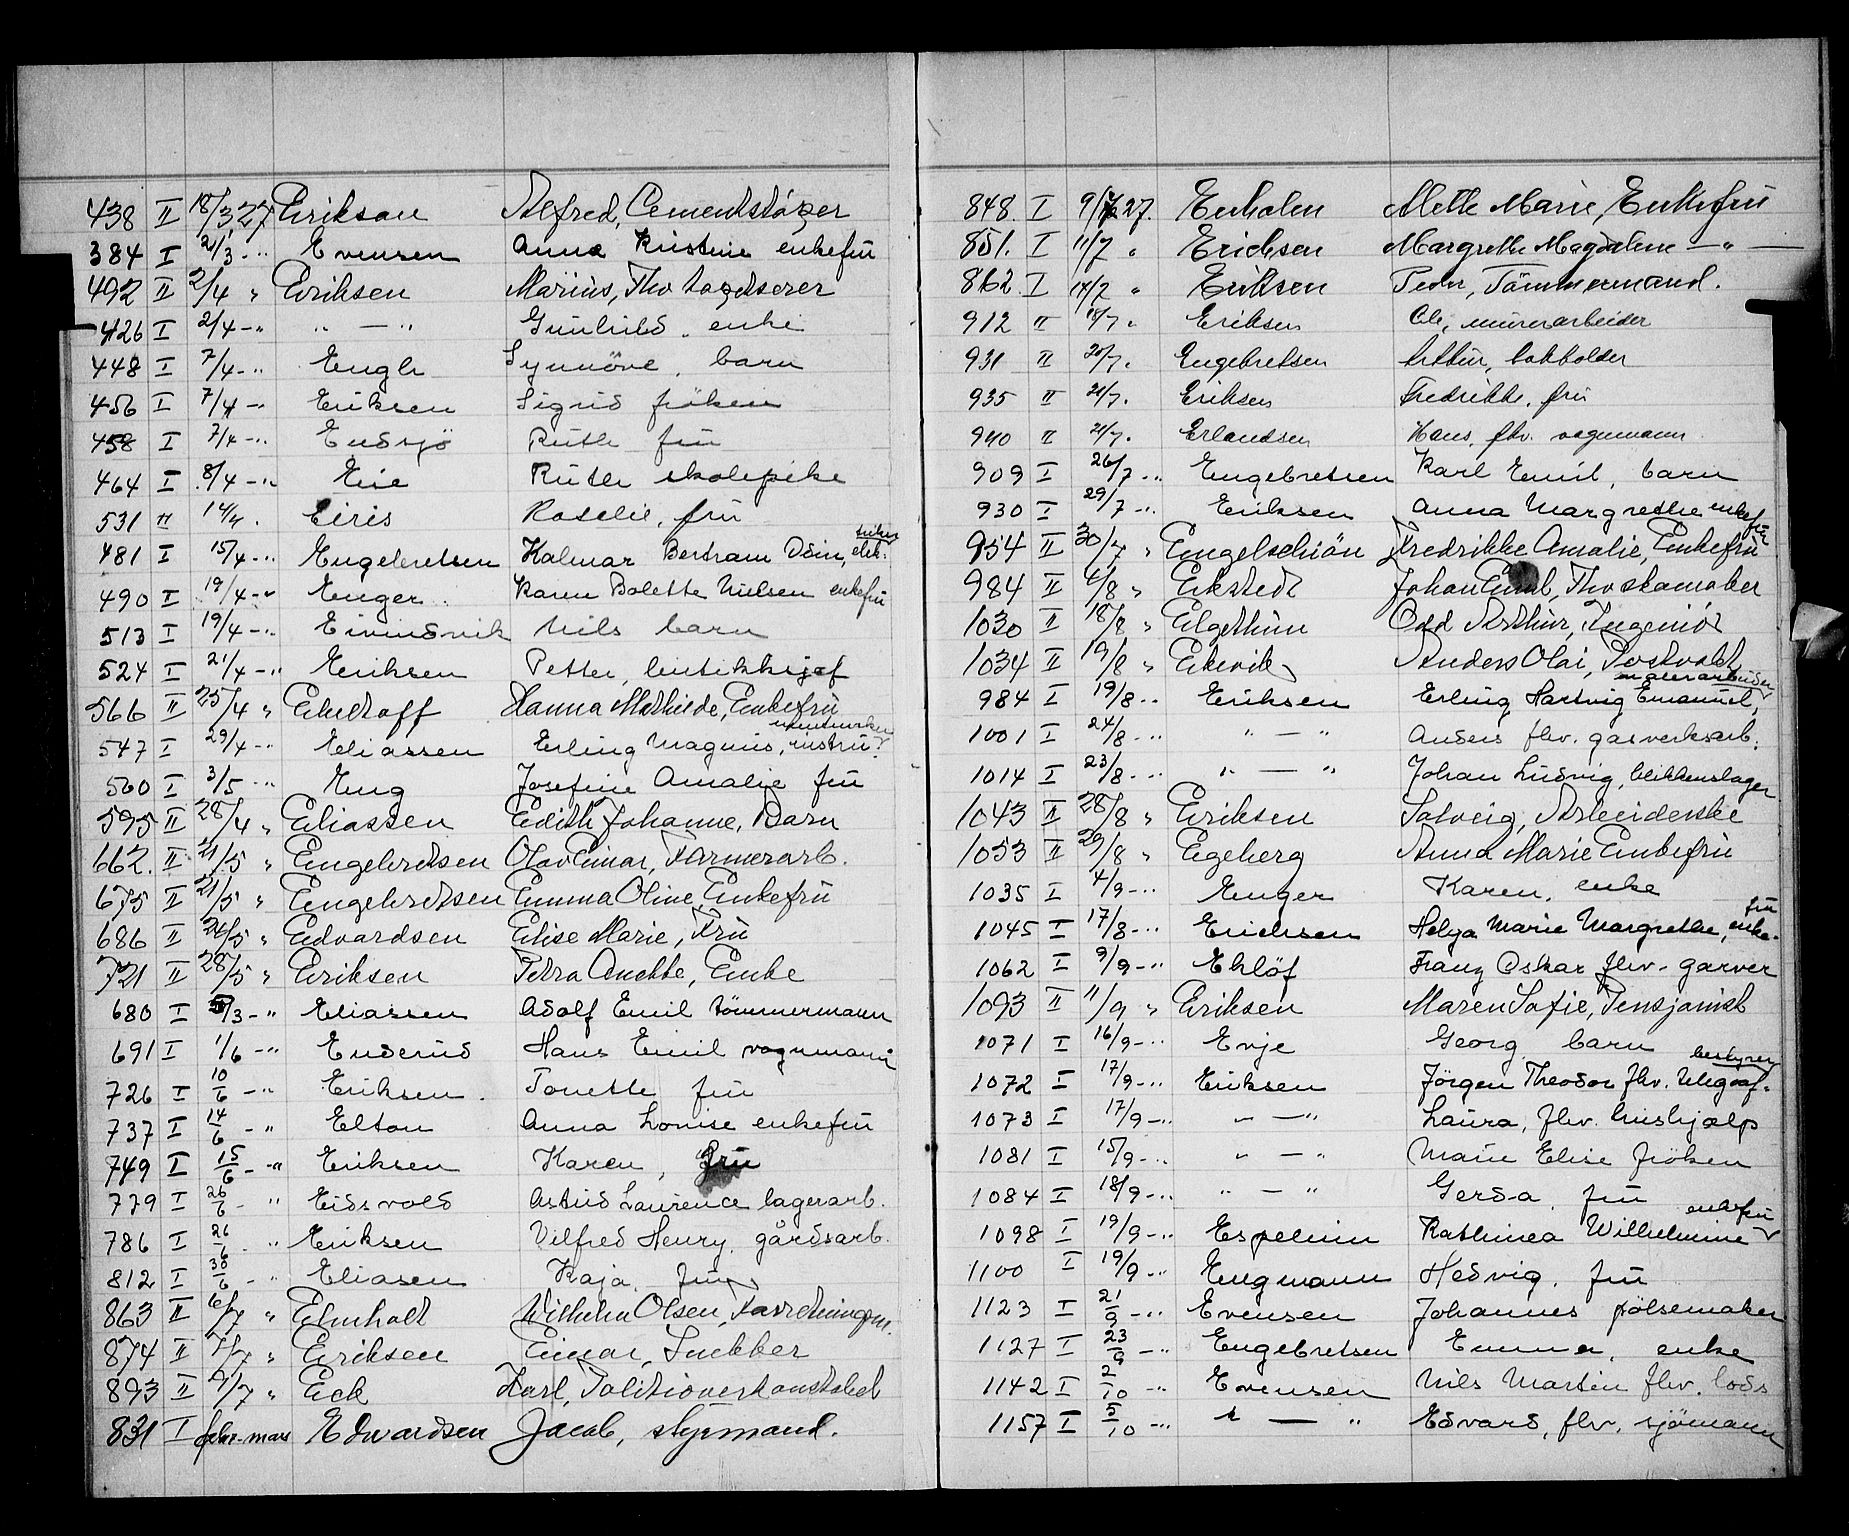 438 II 18/3 27 Erikson Alfred, Cementstøper
384 I 21/3 -" Evensen Anna Kristine enkefru
492 II 2/4 " Eriksen Marius, Fhv
426 I 2/4 -" " — " Gunhild, enke
448 I 7/4 -" Engh Synnöve, barn
456 I 7/4 -" Eriksen Sigrid fröken
458 I 7/4 -" Endsjö Ruth fru
464 I 8/4 -" Eie Ruth skolepike
531 II 14/4. Eiris Roselie, fru
481 I 15/4 -" Engebretsen Halmar Bertram Odin,
490 I 19/4 -" Enger Karen Bolette Nielsen enkefru
513 I 19/4 -" Eivindsvik Nils barn
524 I 21/4 -" Eriksen Petter, butikksjef
566 II 25/4 " Ekeroff Hanna Mathilde, Enkefru
547 I 29/4 -" Eliassen Erling Magnus, instru
560 I 3/5 -" Eng Josefine Amalie fru
595 II 28/4 " Eliassen Edith Johanne, Barn
662. II 21/5 " Engebretsen Olav Einar, Farmerarb.
675 II 21/5 " Engebretsen Emma Oline, Enkefru
686 II 24/5 " Edvardsen Elise Marie, Fru
721 II 28/5 " Eriksen Petra Anette, Enke
680 I /3 -" Eliassen Adolf Emil tömmermann
691 I 1/6 -" Enderud Hans Emil vognmann
726 I 10/6 -" Eriksen. Tonette fru
737 I 14/6 -" Elton Anna Lovise enkefru
749 I 15/6 -" Eriksen Karen, fru
779 I 26/6 -" Eidsvold Astrid Laurence lagerarb.
786 I 26/6 -" Eriksen Vilfred Henry, gårdsarb.
812 I 30/6 -" Eliasen Kaja, fru
863 II 6/7 " Elmholt Wilhelm Olsen, Forretningsm.
874 II 7/7 " Eriksen Einar, Snekker
893 II 9/7 " Eck Karl, Politioverkonstabel
831 I febr-mars Edwardsen Jacob, styrmand.
848. I 9/7 27. Enholm Mette Marie, Enkefru
851. I 11/7 " Erichsen Margrethe Magdalene —"—
862. I 14/7 " Eriksen Peder, Tömmermand.
912 II 18/7 " Eriksen Ole, murerarbeider
931 II 20/7. Engebretsen Arthur, bokholder
935 II 21/7. Eriksen Fredrikke, fru
940 II 21/7. Erlandsen Hans, fhv. vognmann
909 I 26/7 -" Engebretsen Karl Emil, barn
930 I 29/7 -" Eriksen Anna Margrethe enkefru
954 II 30/7 " Engelschiön Fredrikke Amalie, Enkefru
984 II 4/8 " Ekstedt Johan Emil, Fhv skomaker
1030 II 18/8 " Elgethun Odd Arthur, Ingeniör
1034 II 19/8 " Ekevik Anders Olai, Postvakt
malerarbeider
984 I 19/8 -" Eriksen Erling Hartvig Emanuel,
1001 I 24/8 -" " — " Anders fhv. gasverksarb.
1014 I 23/8 -" " — " Johan Ludvig, blikkenslager
1043 II 28/8 " Eriksen Solveig, Arbeiderske
1053 II 29/8 " Egeberg Anna Marie Enkefru
1035 I 4/9 -" Enger Karen, enke
1045 I 17/8 -" Erichsen Helga Marie Margrethe, enke-
fru
1062 I 9/9 -" Eklöf Franz Oskar fhv. garver
1093 II 11/9 " Eriksen Maren Sofie, Pensjonist
1071 I 16/9 -" Evje Georg, barn
1072 I 17/9 -" Eriksen Jörgen Theodor fhv. telegraf-
bestyrer
1073 I 17/9 -" " — " Laura, fhv. hushjælp
1081 I 15/9 -" " — " Marie Elise fröken
1084 I 18/9 -" " — " Gerda fru
1098 I 19/9 -" Espelinn Kathinca Wilhelmine
enkefru
1100 I 19/9 -" Engmann Hedvig, fru
1123 I 21/9 -" Evensen Johannes pölsemaker
1127 I 23/9 -" Engebretsen Emma, enke
1142 I 2/10 -" Evensen Nils Martin fhv. lods
1157 I 5/10 -" " — " Edvard, fhv. sjömann